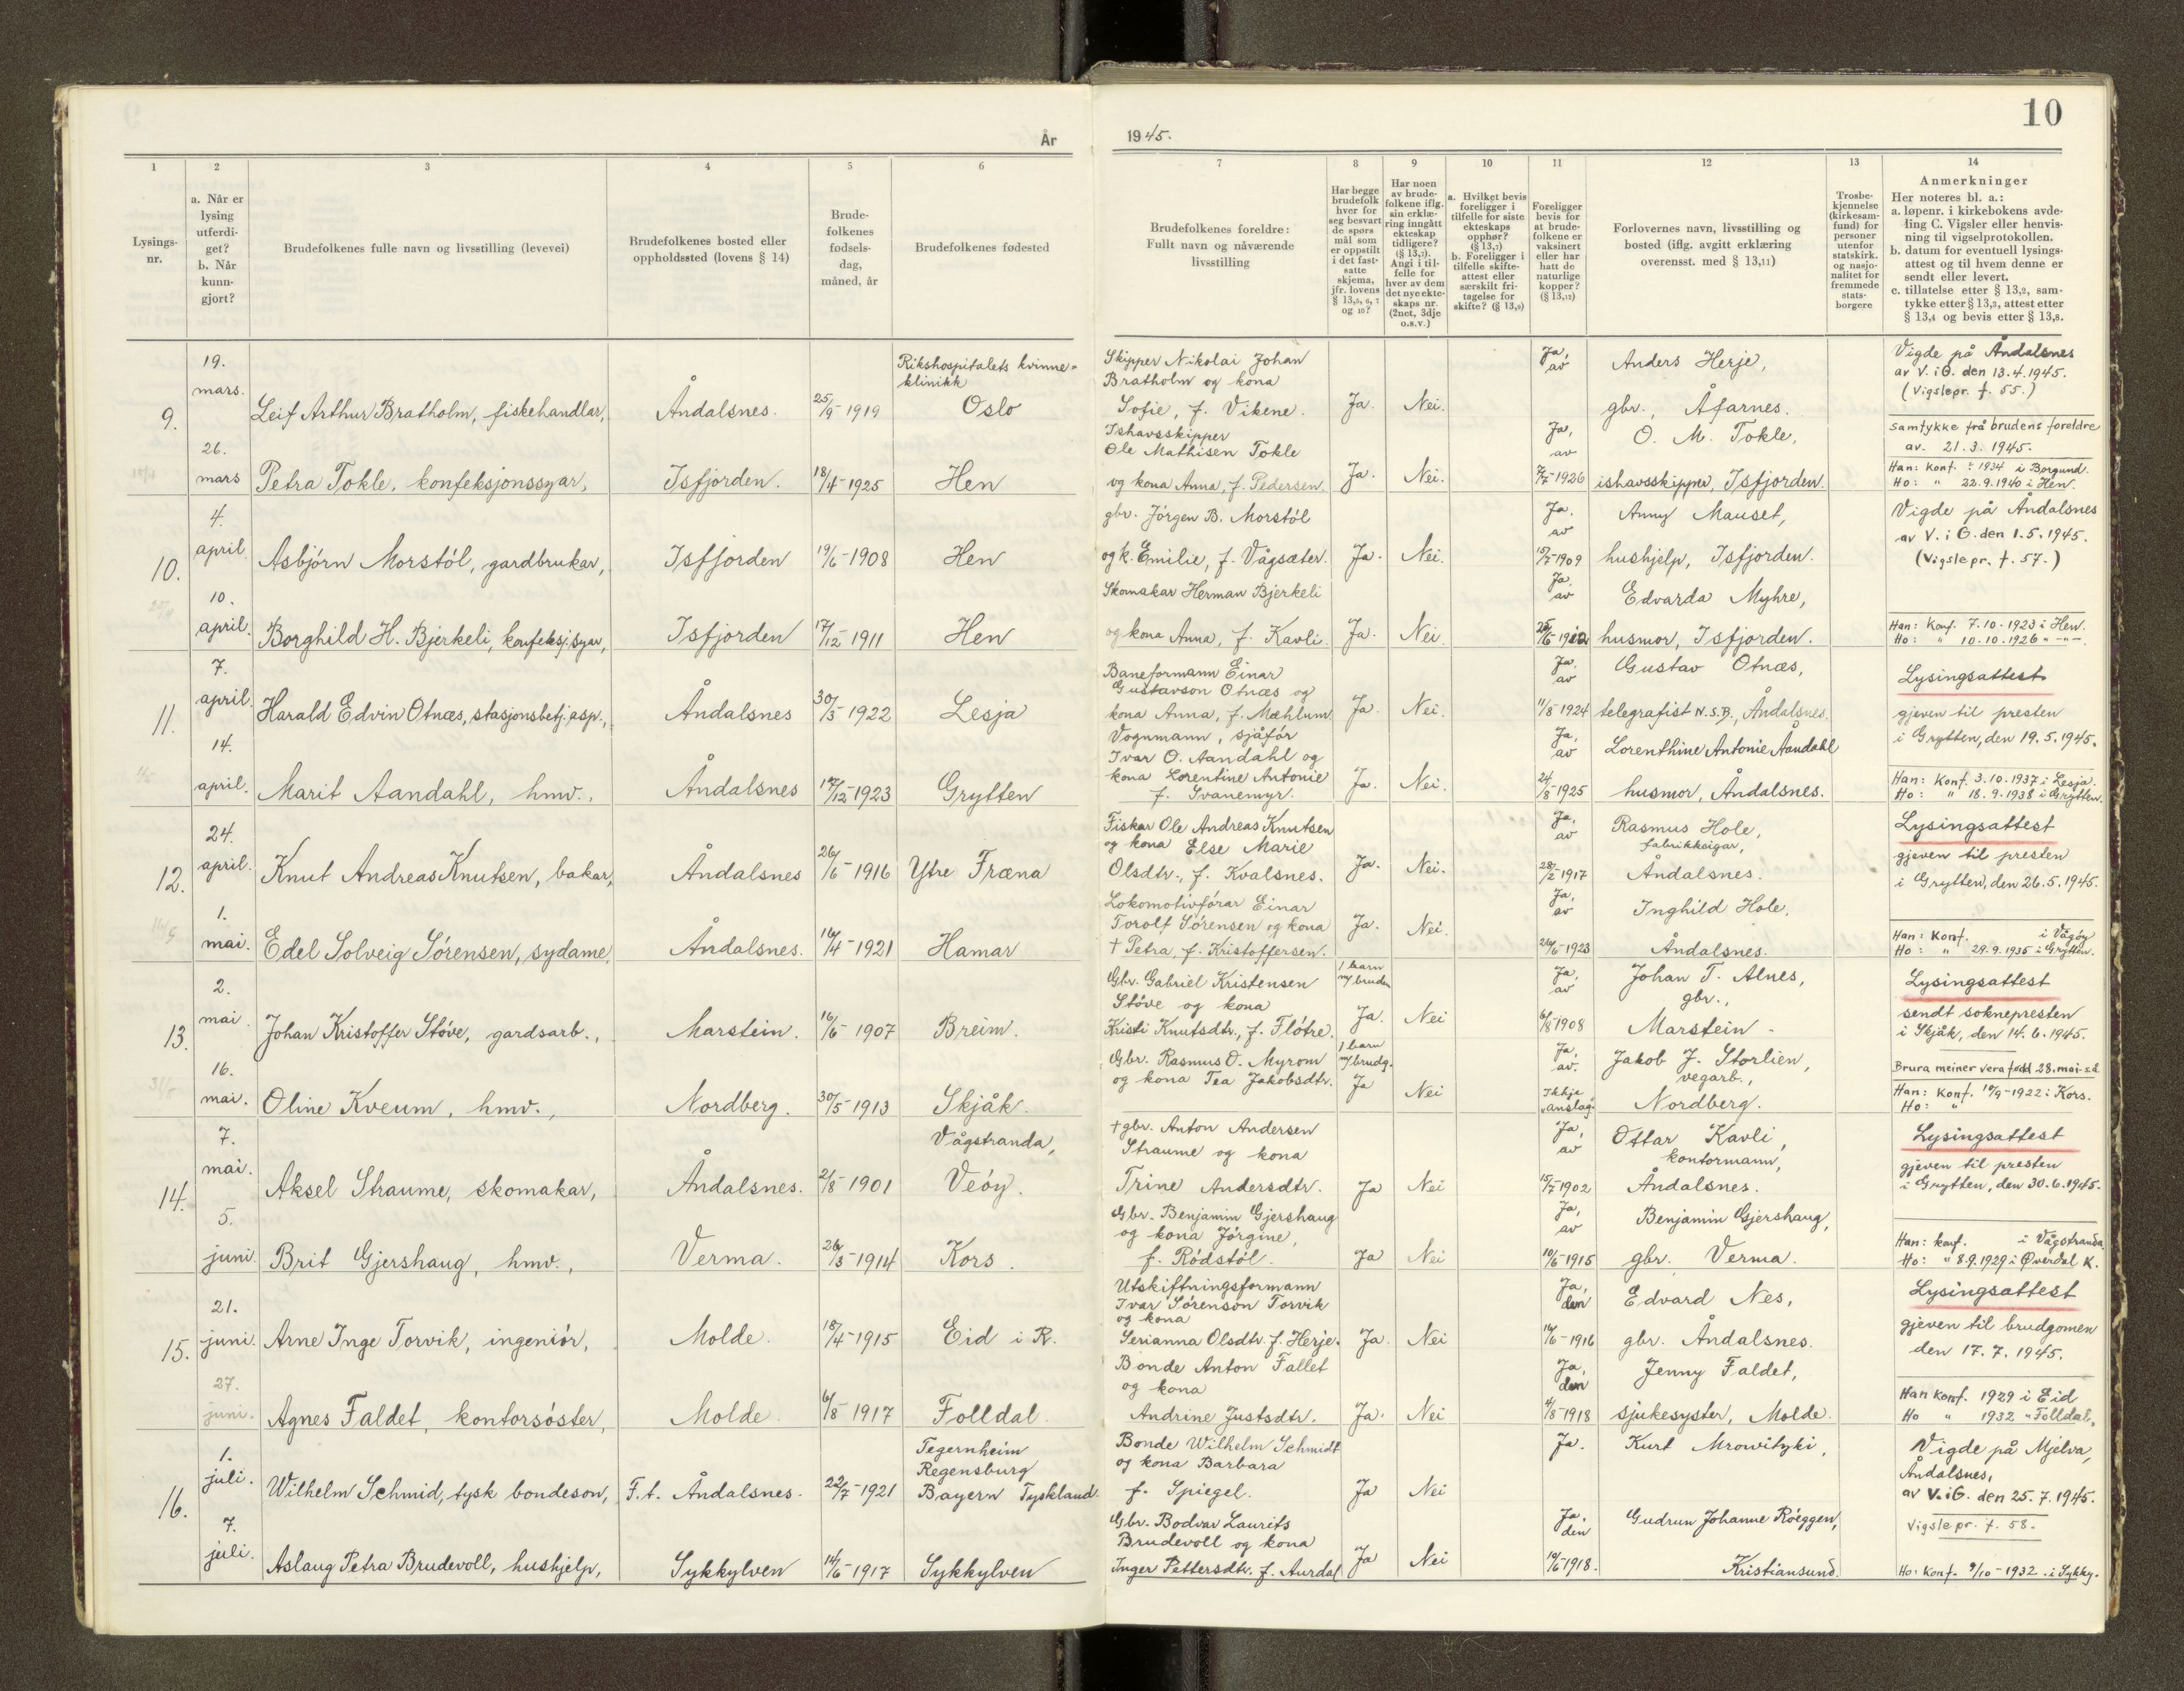 10
År 1945.
1 2 3 4 5 6 7 8 9 10 11 12 13 14
Lysings-
nr.
a. Når er
lysing
utferdi-
get?
b. Når
kunn-
gjort?
Brudefolkenes fulle navn og livsstilling (levevei)
Brudefolkenes bosted eller
oppholdssted (lovens § 14)
Brude-
folkenes
fødsels-
dag,
måned, år
Brudefolkenes fødested
Brudefolkenes foreldre:
Fullt navn og nåværende
livsstilling
Har begge
brudefolk
hver for
seg besvart
de spørs
mål som
er oppstilt
i det fast-
satte
skjema,
jfr. lovens
§ 13,5, 6, 7
og 10?
Har noen
av brude-
folkene iflg.
sin erklæ-
ring inngått
ekteskap
tidligere?
(§ 13,7).
Angi i til-
felle for
hver av dem
det nye ekte-
skaps nr.
(2net, 3dje
o.s.v.)
a. Hvilket bevis
foreligger i
tilfelle for siste
ekteskaps
opphør?
(§ 13,7)
b. Foreligger i
tilfelle skifte-
attest eller
særskilt fri-
tagelse for
skifte? (§ 13,9)
Foreligger
bevis for
at brude-
folkene er
vaksinert
eller har
hatt de
naturlige
kopper?
(§ 13,12)
Forlovernes navn, livsstilling og
bosted (iflg. avgitt erklæring
overensst. med § 13,11)
Trosbe-
kjennelse
(kirkesam-
fund) for
personer
utenfor
statskirk.
og nasjo-
nalitet for
fremmede
stats-
borgere
Anmerkninger
Her noteres bl. a.:
a. løpenr. i kirkebokens avde-
ling C. Vigsler eller henvis-
ning til vigselprotokollen.
b. datum for eventuell lysings-
attest og til hvem denne er
sendt eller levert.
c. tillatelse etter § 13,2, sam-
tykke etter § 13,3, attest etter
§ 13,4 og bevis etter § 13,8.
9.
19.
mars.
Leif Arthur Bratholm, fiskehandlar,
Åndalsnes.
25/9-1919
Rikshospitalets kvinne-
klinikk
Oslo
Skipper Nikolai Johan
Bratholm og kona
Sofie, f. Vikene.
Ja. Nei.
Ja,
av
Anders Herje,
gbr., Åfarnes.
Vigde på Åndalsnes
av V. i G. den 13.4.1945.
(Vigslepr. f. 55.)
26.
mars
Petra Tokle, konfeksjonssyar,
Isfjorden.
18/4-1925
Hen
Ishavsskipper
Ole Mathisen Tokle
og kona Anna, f. Pedersen.
Ja. Nei.
Ja,
av
7/7-1926
O. M. Tokle,
ishavsskipper, Isfjorden.
Samtykke frå brudens foreldre
av. 21.3.1945.
Han: Konf. : 1934 i Borgund.
Ho: " 22.9.1940 i Hen.
10.
4.
april.
Asbjörn Morstöl, gardbrukar,
Isfjorden
19/6-1908
Hen
gbr. Jörgen B. Morstöl
og k. Emilie, f. Vågsæter.
Ja. Nei.
Ja.
av
Anny Mauset,
hushjelp, Isfjorden.
Vigde på Åndalsnes
av V. i G. den 1.5.1945.
(Vigslepr. f. 57.)
10.
april.
Borghild H. Bjerkeli, konfeksj.syar,
Isfjorden
17/12-1911
Hen
Skomakar Herman Bjerkeli
og kona Anna, f. Kavli.
Ja. Nei.
Ja.
av
Edvarda Myhre,
husmor, Isfjorden.
Han: Konf. 7.10.1923 i Hen.
Ho: " 10.10.1926 " -"-
11.
7.
april.
Harald Edvin Otnæs, stasjonsbetj.asp.,
Åndalsnes
30/3-1922
Lesja
Baneformann Einar
Gustavson Otnæs og
kona Anna, f. Mæhlum
Ja. Nei.
Ja.
av
11/8-1924
Gustav Otnæs,
telegrafist N.S.B., Åndalsnes.
Lysingsattest
gjeven til presten
i Grytten, den 19.5.1945.
14.
april.
Marit Aandahl, hmv.,
Åndalsnes
17/12-1923
Grytten
Vognmann, sjåför
Ivar O. Aandahl og
kona Lorentine Antonie
f. Svanemyr.
Ja. Nei.
Ja,
av
24/8-1925
Lorenthine Antonie Aandahl
husmor, Åndalsnes.
Han: Konf. 3.10.1937 i Lesja.
Ho: " 18.9.1938 i Grytten.
12.
24.
april.
Knut Andreas Knutsen, bakar,
Åndalsnes
26/6-1916
Ytre Fræna
Fiskar Ole Andreas Knutsen
og kona Else Marie
Olsdtr., f. Kvalsnes.
Ja. Nei.
Ja,
av
28/2-1917
Rasmus Hole,
fabrikkeigar,
Åndalsnes.
Lysingsattest
gjeven til presten
i Grytten, den 26.5.1945.
1.
mai.
Edel Solveig Sörensen, sydame,
Åndalsnes.
16/4-1921
Hamar
Lokomotivförar Einar
Torolf Sörensen og kona
+ Petra, f. Kristoffersen.
Ja. Nei.
Ja,
av
26/6-1923
Inghild Hole,
Åndalsnes.
Han: Konf. i Vågöy
Ho: " 29.9.1935 i Grytten.
13.
2.
mai
Johan Kristoffer Stöve, gardsarb.,
Marstein.
16/6-1907
Breim.
Gbr. Gabriel Kristensen
Stöve og kona
Kristi Knutsdtr., f. Flötre.
1 barn
m/ bruden
Ja. Nei
Ja,
av
6/8-1908
Johan T. Alnes,
gbr.,
Marstein -
Lysingsattest
sendt soknepresten
i Skjåk, den 14.6.1945.
16.
mai.
Oline Kveum, hmv.,
Nordberg.
30/5-1913
Skjåk.
Gbr. Rasmus O. Myrom
og kona Tea Jakobsdtr.
1 barn
m/ brudg.
Ja Nei
Ja,
av.
Ikkje
"anslag"
Jakob J. Storlien,
vegarb.,
Nordberg.
Brura meiner vera född 28.mai s.å.
Han: Konf. 10/9-1922 i Kors.
Ho: "
14.
7.
mai.
Aksel Straume, skomakar,
Åndalsnes.
2/8-1901
Vågstranda,
Veöy.
+ gbr. Anton Andersen
Straume og kona
Trine Andersdtr.
Ja Nei
Ja,
av
15/7-1902
Ottar Kavli,
kontormann,
Åndalsnes.
Lysingsattest
gjeven til presten
i Grytten, den 30.6.1945.
5.
juni.
Brit Gjershaug, hmv.,
Verma.
26/3-1914
Kors.
Gbr. Benjamin Gjershaug
og kona Jörgine,
f. Rödstöl.
Ja Nei
Ja,
av
10/6-1915
Benjamin Gjershaug,
gbr. Verma.
Han: konf. i Vågstranda.
Ho: " 8.9.1929 i Øverdal K.
15.
21.
juni.
Arne Inge Torvik, ingeniör,
Molde.
18/4-1915
Eid i R.
Utskiftningsformann
Ivar Sörenson Torvik
og kona
Serianna Olsdtr. f. Herje.
Ja. Nei
Ja,
den
16/6-1916
Edvard Nes,
gbr. Åndalsnes.
Lysingsattest
gjeven til brudgomen
den 17.7.1945.
27.
juni.
Agnes Faldet, kontorsöster,
Molde.
6/8-1917
Folldal.
Bonde Anton Fallet
og kona
Andrine Justsdtr.
Ja. Nei
Ja,
den
4/8-1918
Jenny Faldet,
sjukesyster, Molde.
Han konf. 1929 i Eid
Ho " 1932 "Folldal"
16.
1.
juli.
Wilhelm Schmid, tysk bondeson,
F.t. Åndalsnes.
22/7-1921
Tegernheim
Regensburg
Bayern Tyskland.
Bonde Wilhelm Schmidt
og kona Barbara
f. Spiegel.
Ja Nei
Ja.
Kurt Mrowitzki,
Vigde på Mjelva,
Åndalsnes,
av V. i G. den 25.7.1945.
Vigslepr. f. 58.
7.
juli.
Aslaug Petra Brudevoll, hushjelp,
Sykkylven
14/6-1917
Sykkylven
Gbr. Bodvar Laurits
Brudevoll og kona
Inger Pettersdtr. f. Aurdal
Ja Nei
Ja.
den
10/6-1918.
Gudrun Johanne Röeggen,
Kristiansund.
Ho: Konf. 9/10-1932. i Sykky.